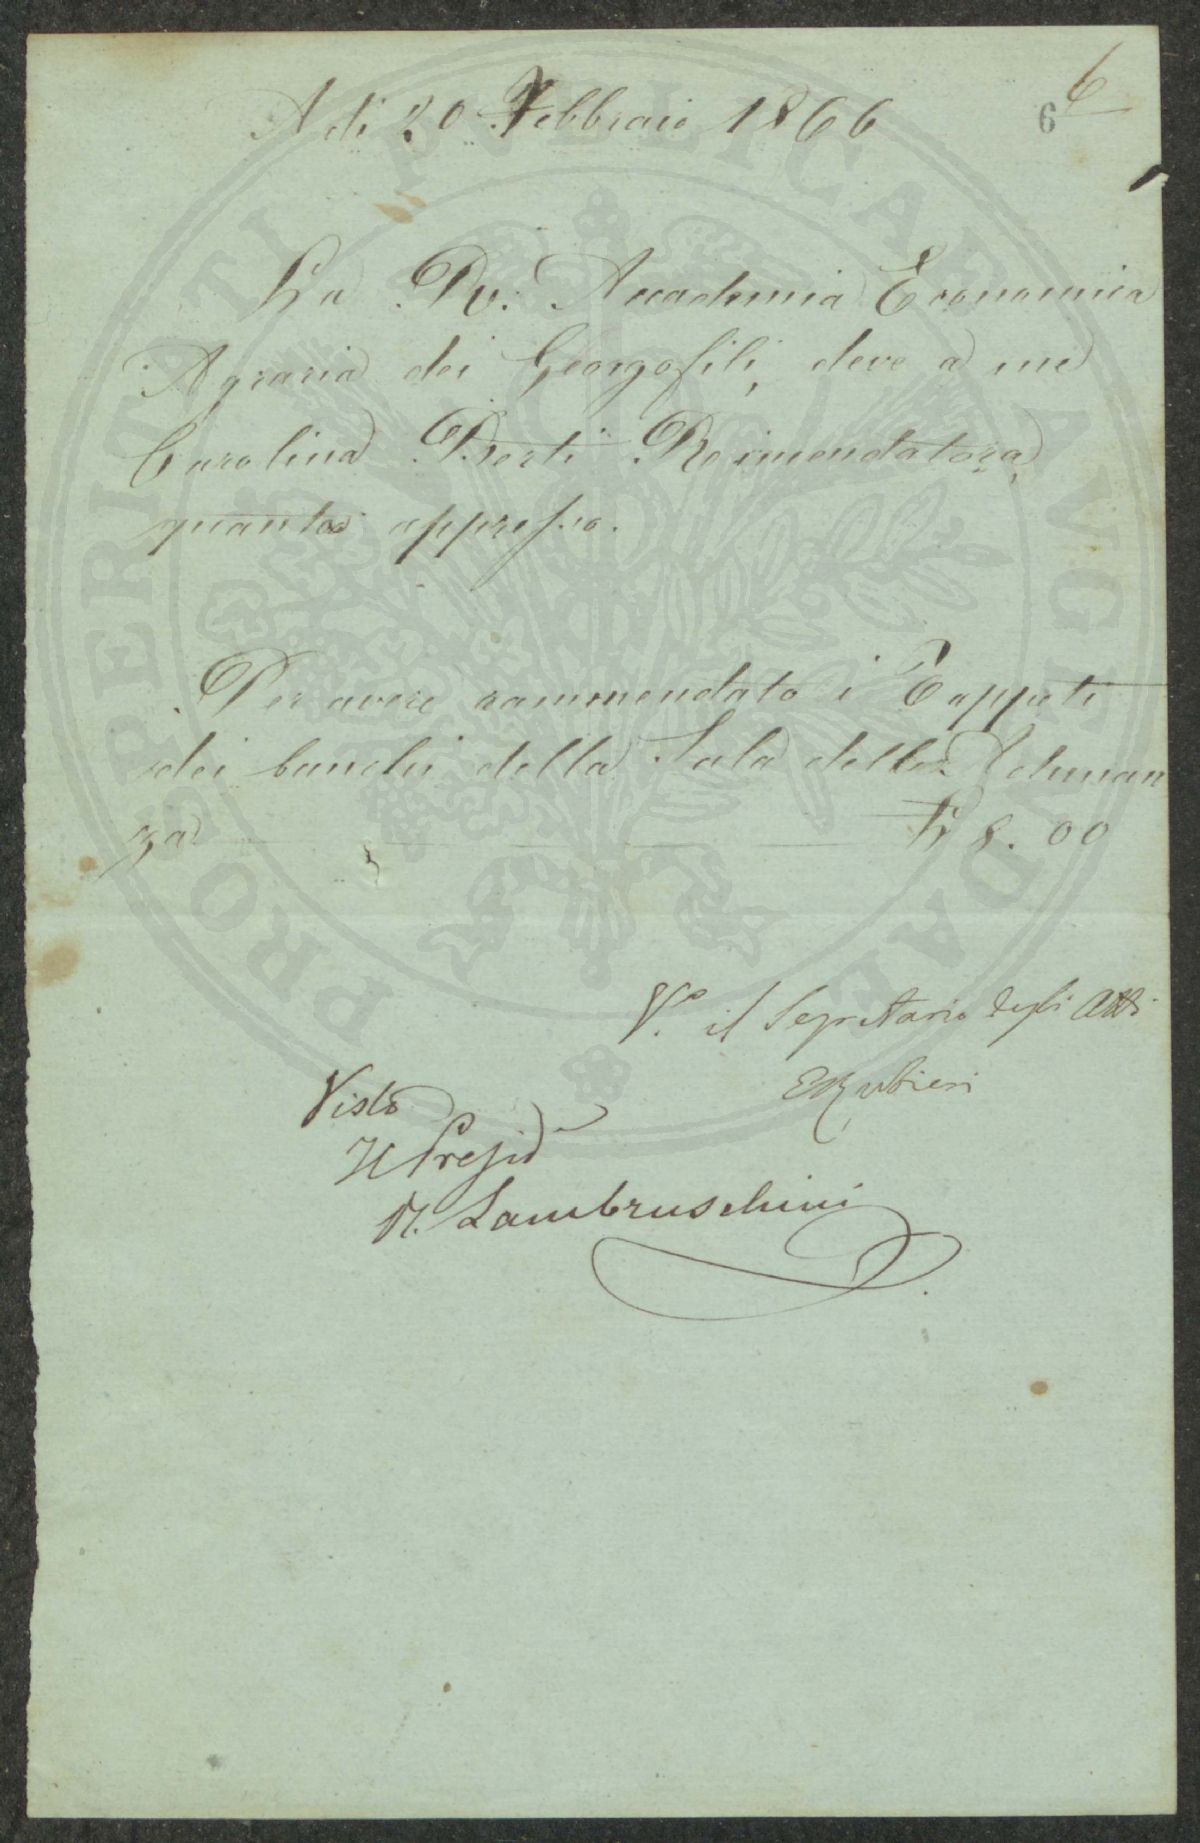 6
6
A dì 20 Febbraio 1866
La R. Accademia Economica
Agraria dei Georgofili, deve a me
Carolina Berti Rimendatora,
quanto appresso.
Per avere rammendato i Tappeti
dei banchi della Sala delle Adunan
za L 8. 00
V.º il Segretario degli Atti
E Rubieri
Visto
Il Presid
R. Lambruschini
PROSPERITATI PVBLICAE AVGENDAE